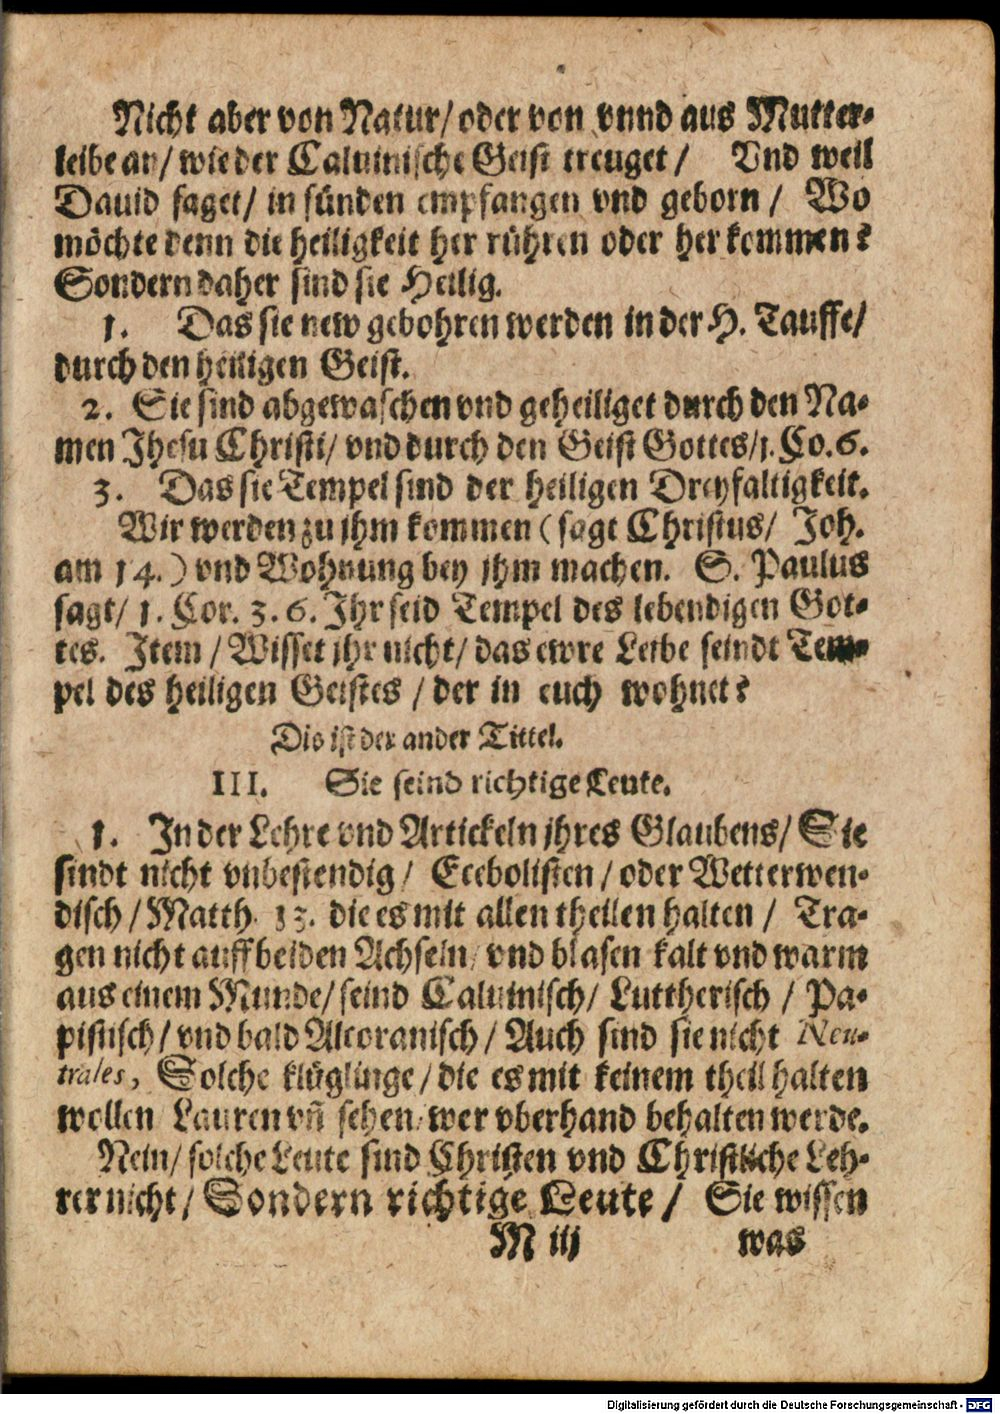 Nicht aber von Natur/ oder von vnnd aus Mutter-
leibe an/ wie der Caluinische Geist treuget/ Vnd weil
Dauid saget/ in sünden empfangen vnd geborn/ Wo
möchte denn die heiligkeit her rühren oder her kommen?
Sondern daher sind sie Heilig.
1. Das sie new gebohren werden in der H. Tauffe/
durch den heiligen Geist.
2. Sie sind abgewaschen vnd geheiliget durch den Na-
men Jhesu Christi/ vnd durch den Geist Gottes/1. Co. 6.
3. Das sie Tempel sind der heiligen Dreyfaltigkeit.
Wir werden zu jhm kommen (sagt Christus/ Joh.
am 14.) vnd Wohnung bey jhm machen. S. Paulus
sagt/ 1. Cor. 3. 6. Jhr seid Tempel des lebendigen Got-
tes. Item/ Wisset jhr nicht/ das ewre Leibe seindt Tem-
pel des heiligen Geistes/ der in euch wohnet?
Dis ist der ander Tittel.
III. Sie seind richtige Leute.
1. In der Lehre vnd Artickeln jhres Glaubens/ Sie
sindt nicht vnbestendig/ Ecebolisten/ oder Wetterwen-
disch/ Matth. 13. die es mit allen theilen halten/ Tra-
gen nicht auff beiden Achseln/ vnd blasen kalt vnd warm
aus einem Munde/ seind Caluinisch/ Luttherisch/ Pa-
pistisch/ vnd bald Alcoranisch/ Auch sind sie nicht Neu-
trales, Solche klüglinge/ die es mit keinem theil halten
wollen Lauren vñ sehen/ wer vberhand behalten werde.
Nein/ solche Leute sind Christen vnd Christliche Leh-
rer nicht/ Sondern richtige Leute/ Sie wissen
M iij was
Digitalisierung gefördert durch die Deutsche Forschungsgemeinschaft - DFG